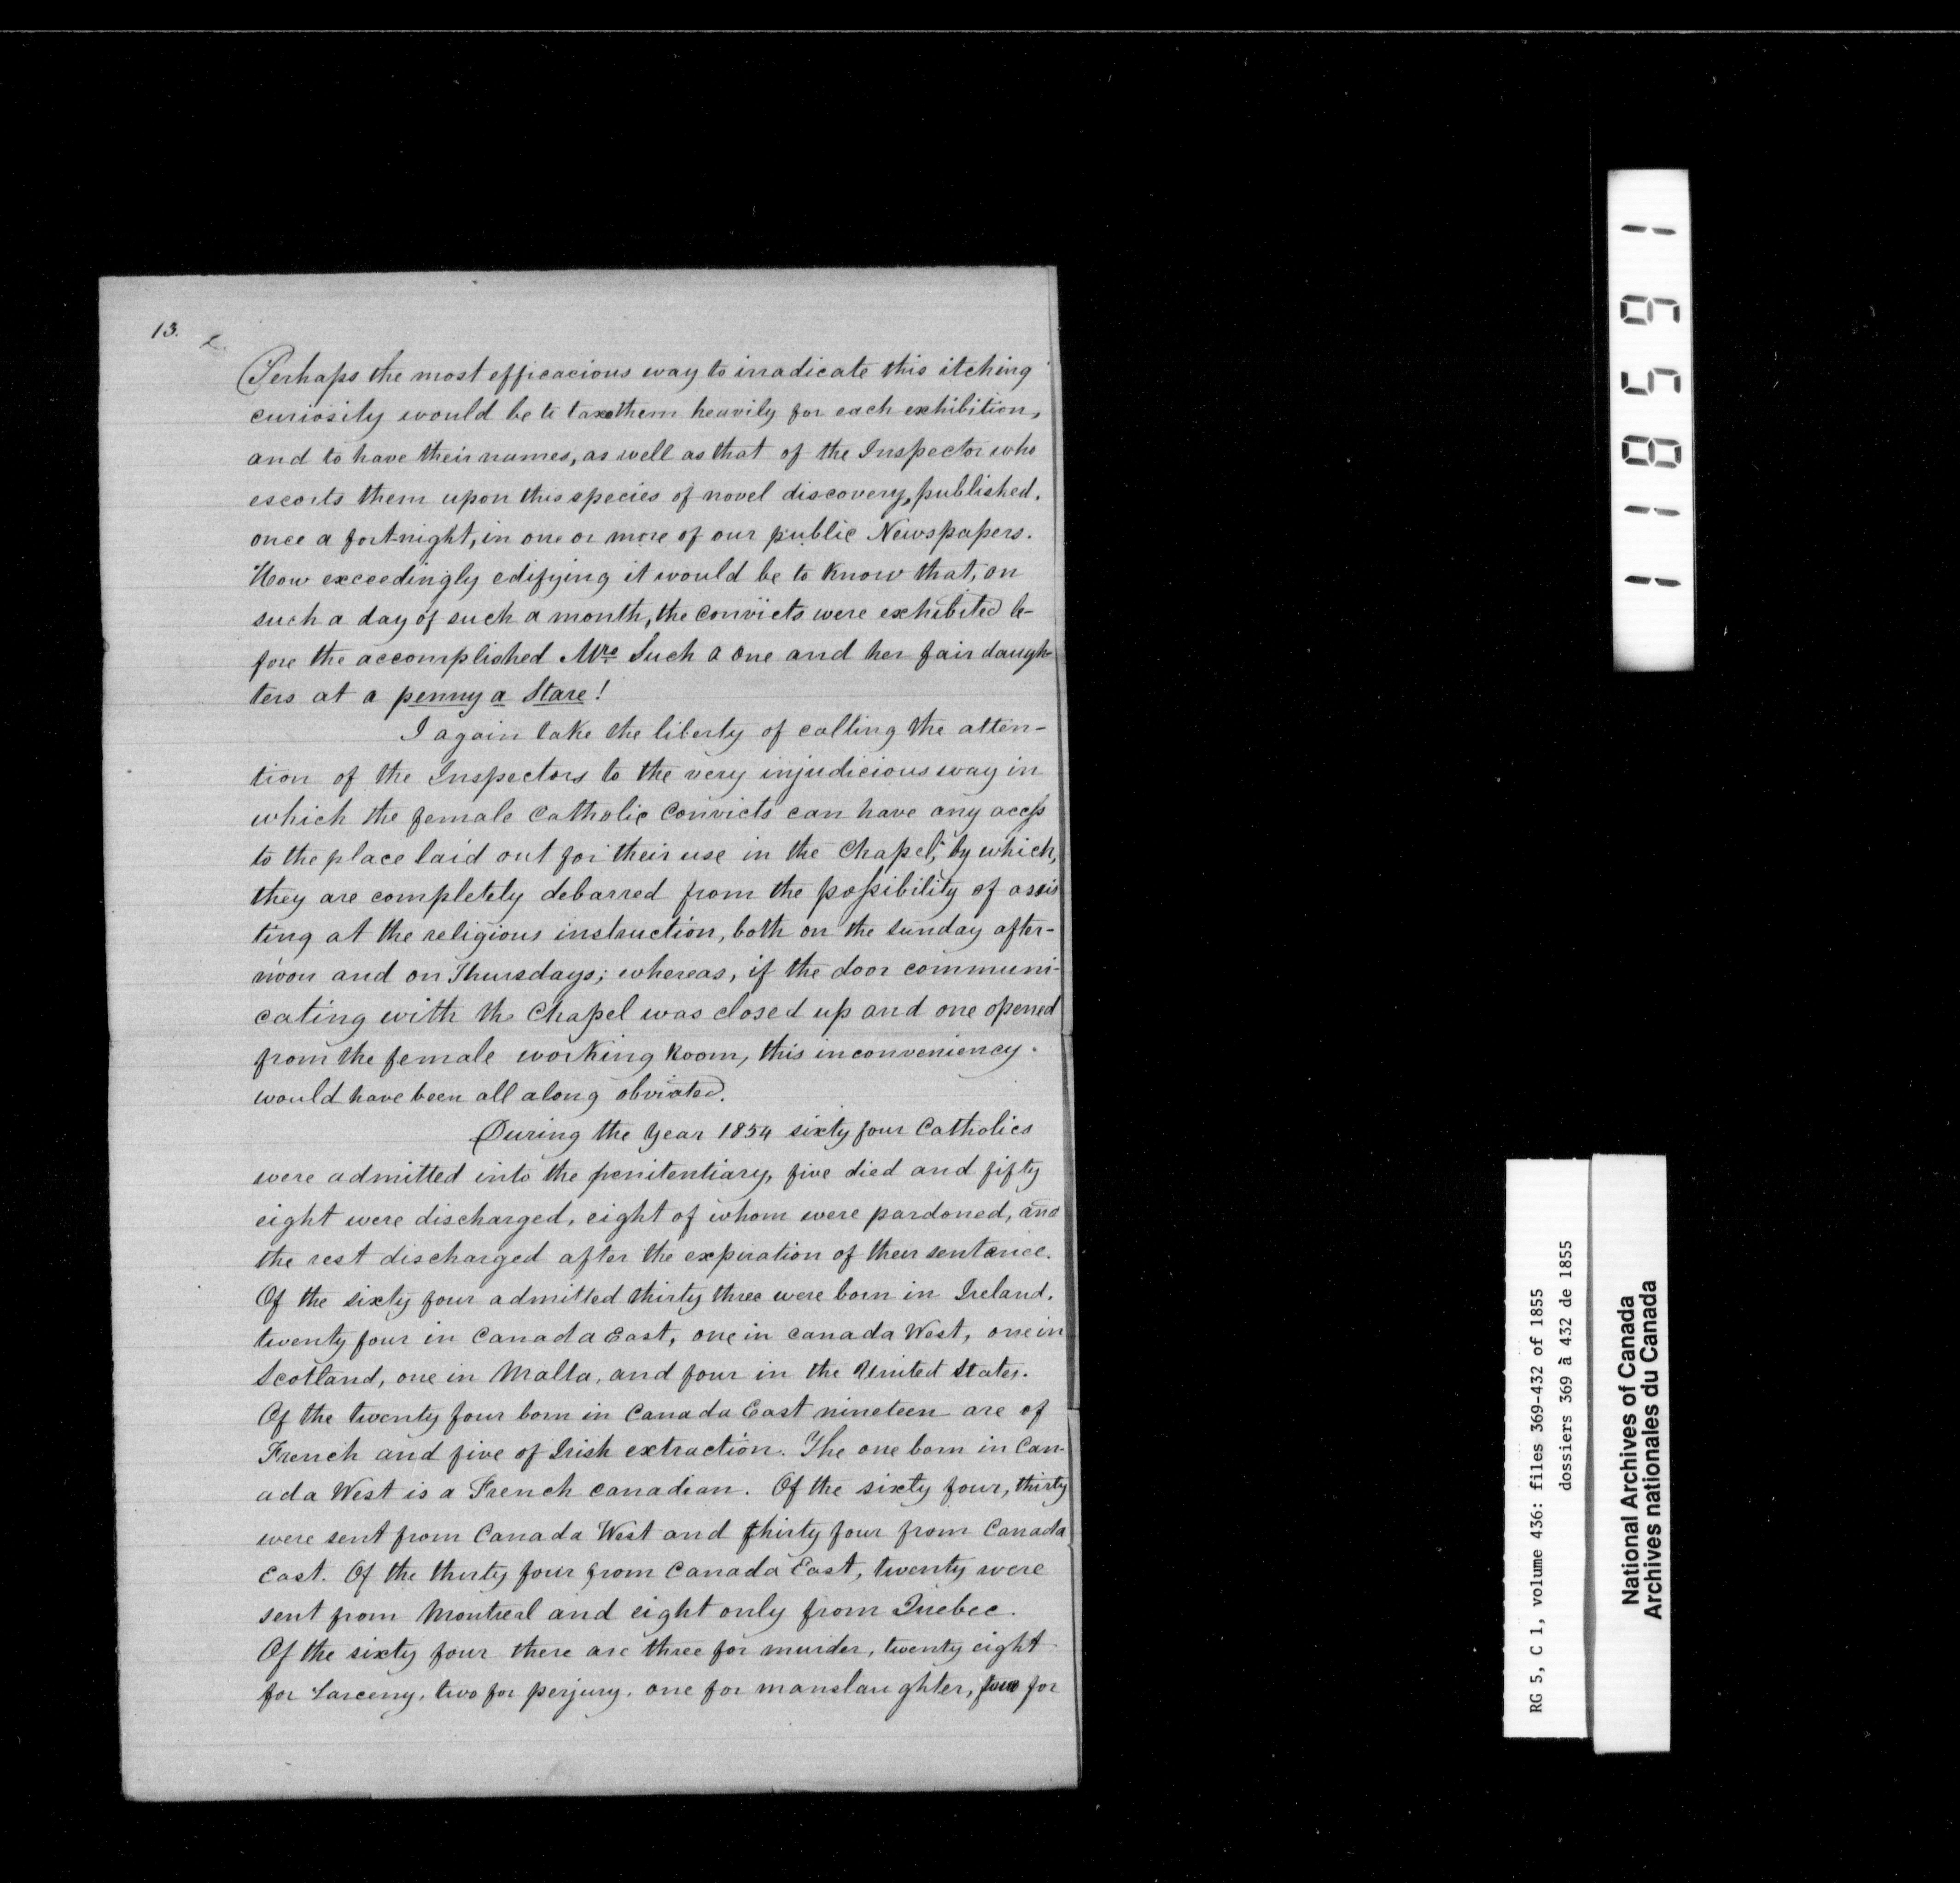 13.
Perhaps the most efficacious way to irradicate this itching
curiosity would be to taxe them heavily for each exhibition,
and to have their names, as well as that of the Inspector who
escorts them upon this species of novel discovery, published,
once a fort-night, in one or more of our public Newspapers.
How exceedingly edifying it would be to know that, on
such a day of such a month, the convicts were exhibited be-
fore the accomplished Mrs Such a one and her fair daugh-
ters at a penny a Stare!
I again take the liberty of calling the atten-
tion of the Inspectors to the very injudicious way in
which the female Catholic Convicts can have any access
to the place laid out for their use in the Chapel; by which,
they are completely debarred from the possibility of assis
ting at the religious instruction, both on the sunday after-
noon and on Thursdays; whereas, if the door communi-
cating with the Chapel was closed up and one opened
from the female working Room, this inconveniency
would have been all along obviated.
During the year 1854 sixty four Catholics
were admitted into the penitentiary, five died and fifty
eight were discharged, eight of whom were pardoned, and
the rest discharged after the expiration of their sentence.
Of the sixty four admitted thirty three were born in Ireland,
twenty four in Canada East, one in Canada West, one in
Scotland, one in Malta, and four in the United States.
Of the twenty four born in Canada East nineteen are of
French and five of Irish extraction. The one born in Can-
ada West is a French canadian. Of the sixty four, thirty
were sent from Canada West and thirty four from Canada
East. Of the thirty four from Canada East, twenty were
sent from Montreal and eight only from Quebec.
Of the sixty four there are three for murder, twenty eight
for Larceny, two for perjury, one for manslaughter, four for
1 1 8 5 9 1
RG 5, C 1, volume 436: files 369-432 of 1855
dossiers 369 à 432 de 1855
National Archives of Canada
Archives nationales du Canada